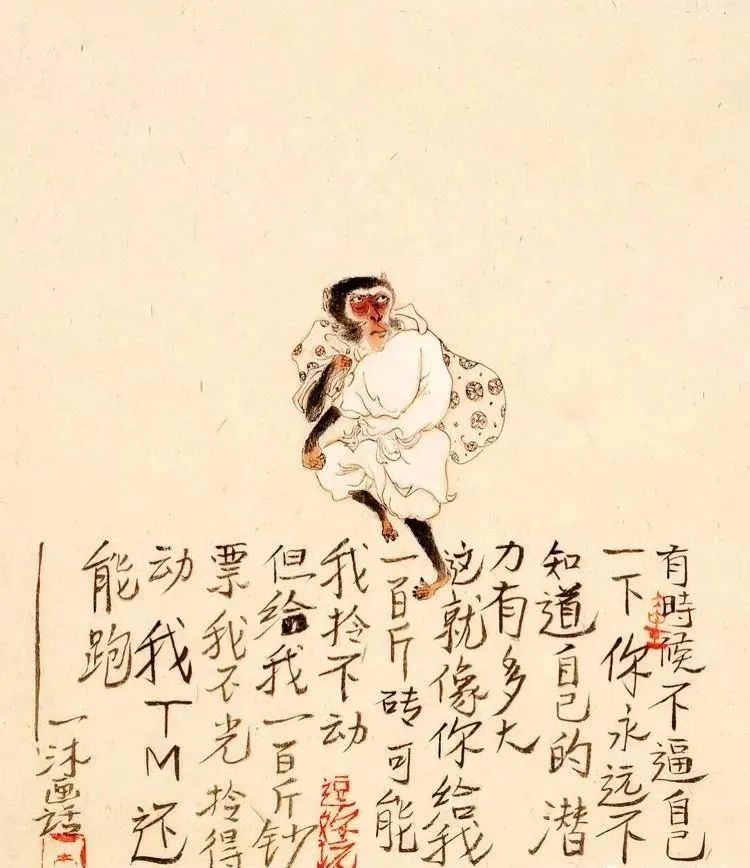 有時候不逼自己
一下你永远不
知道自己的潜
力有多大
这就像你给我
一百斤砖可能
我拎不动
但给我一百斤钞
票我不光拎得
动我TM还
能跑
一沐画话
逗你玩